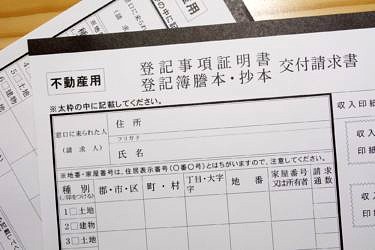 不動産用
登記事項証明書
登記簿謄本・抄本
交付請求書
※太枠の中に記載してください。
窓口に来られた人
(請求人)
住所
フリガナ
氏名
収入印
印紙
収入
印紙
※地番・家屋番号は、住居表示番号(〇番〇号)とはちがいますので、注意してください。
種別
郡・市・区
町・村
丁目・大字
字
地番
家屋番号
又は所有者
請求
通数
1□土地
2□建物
3□土地
の中に記